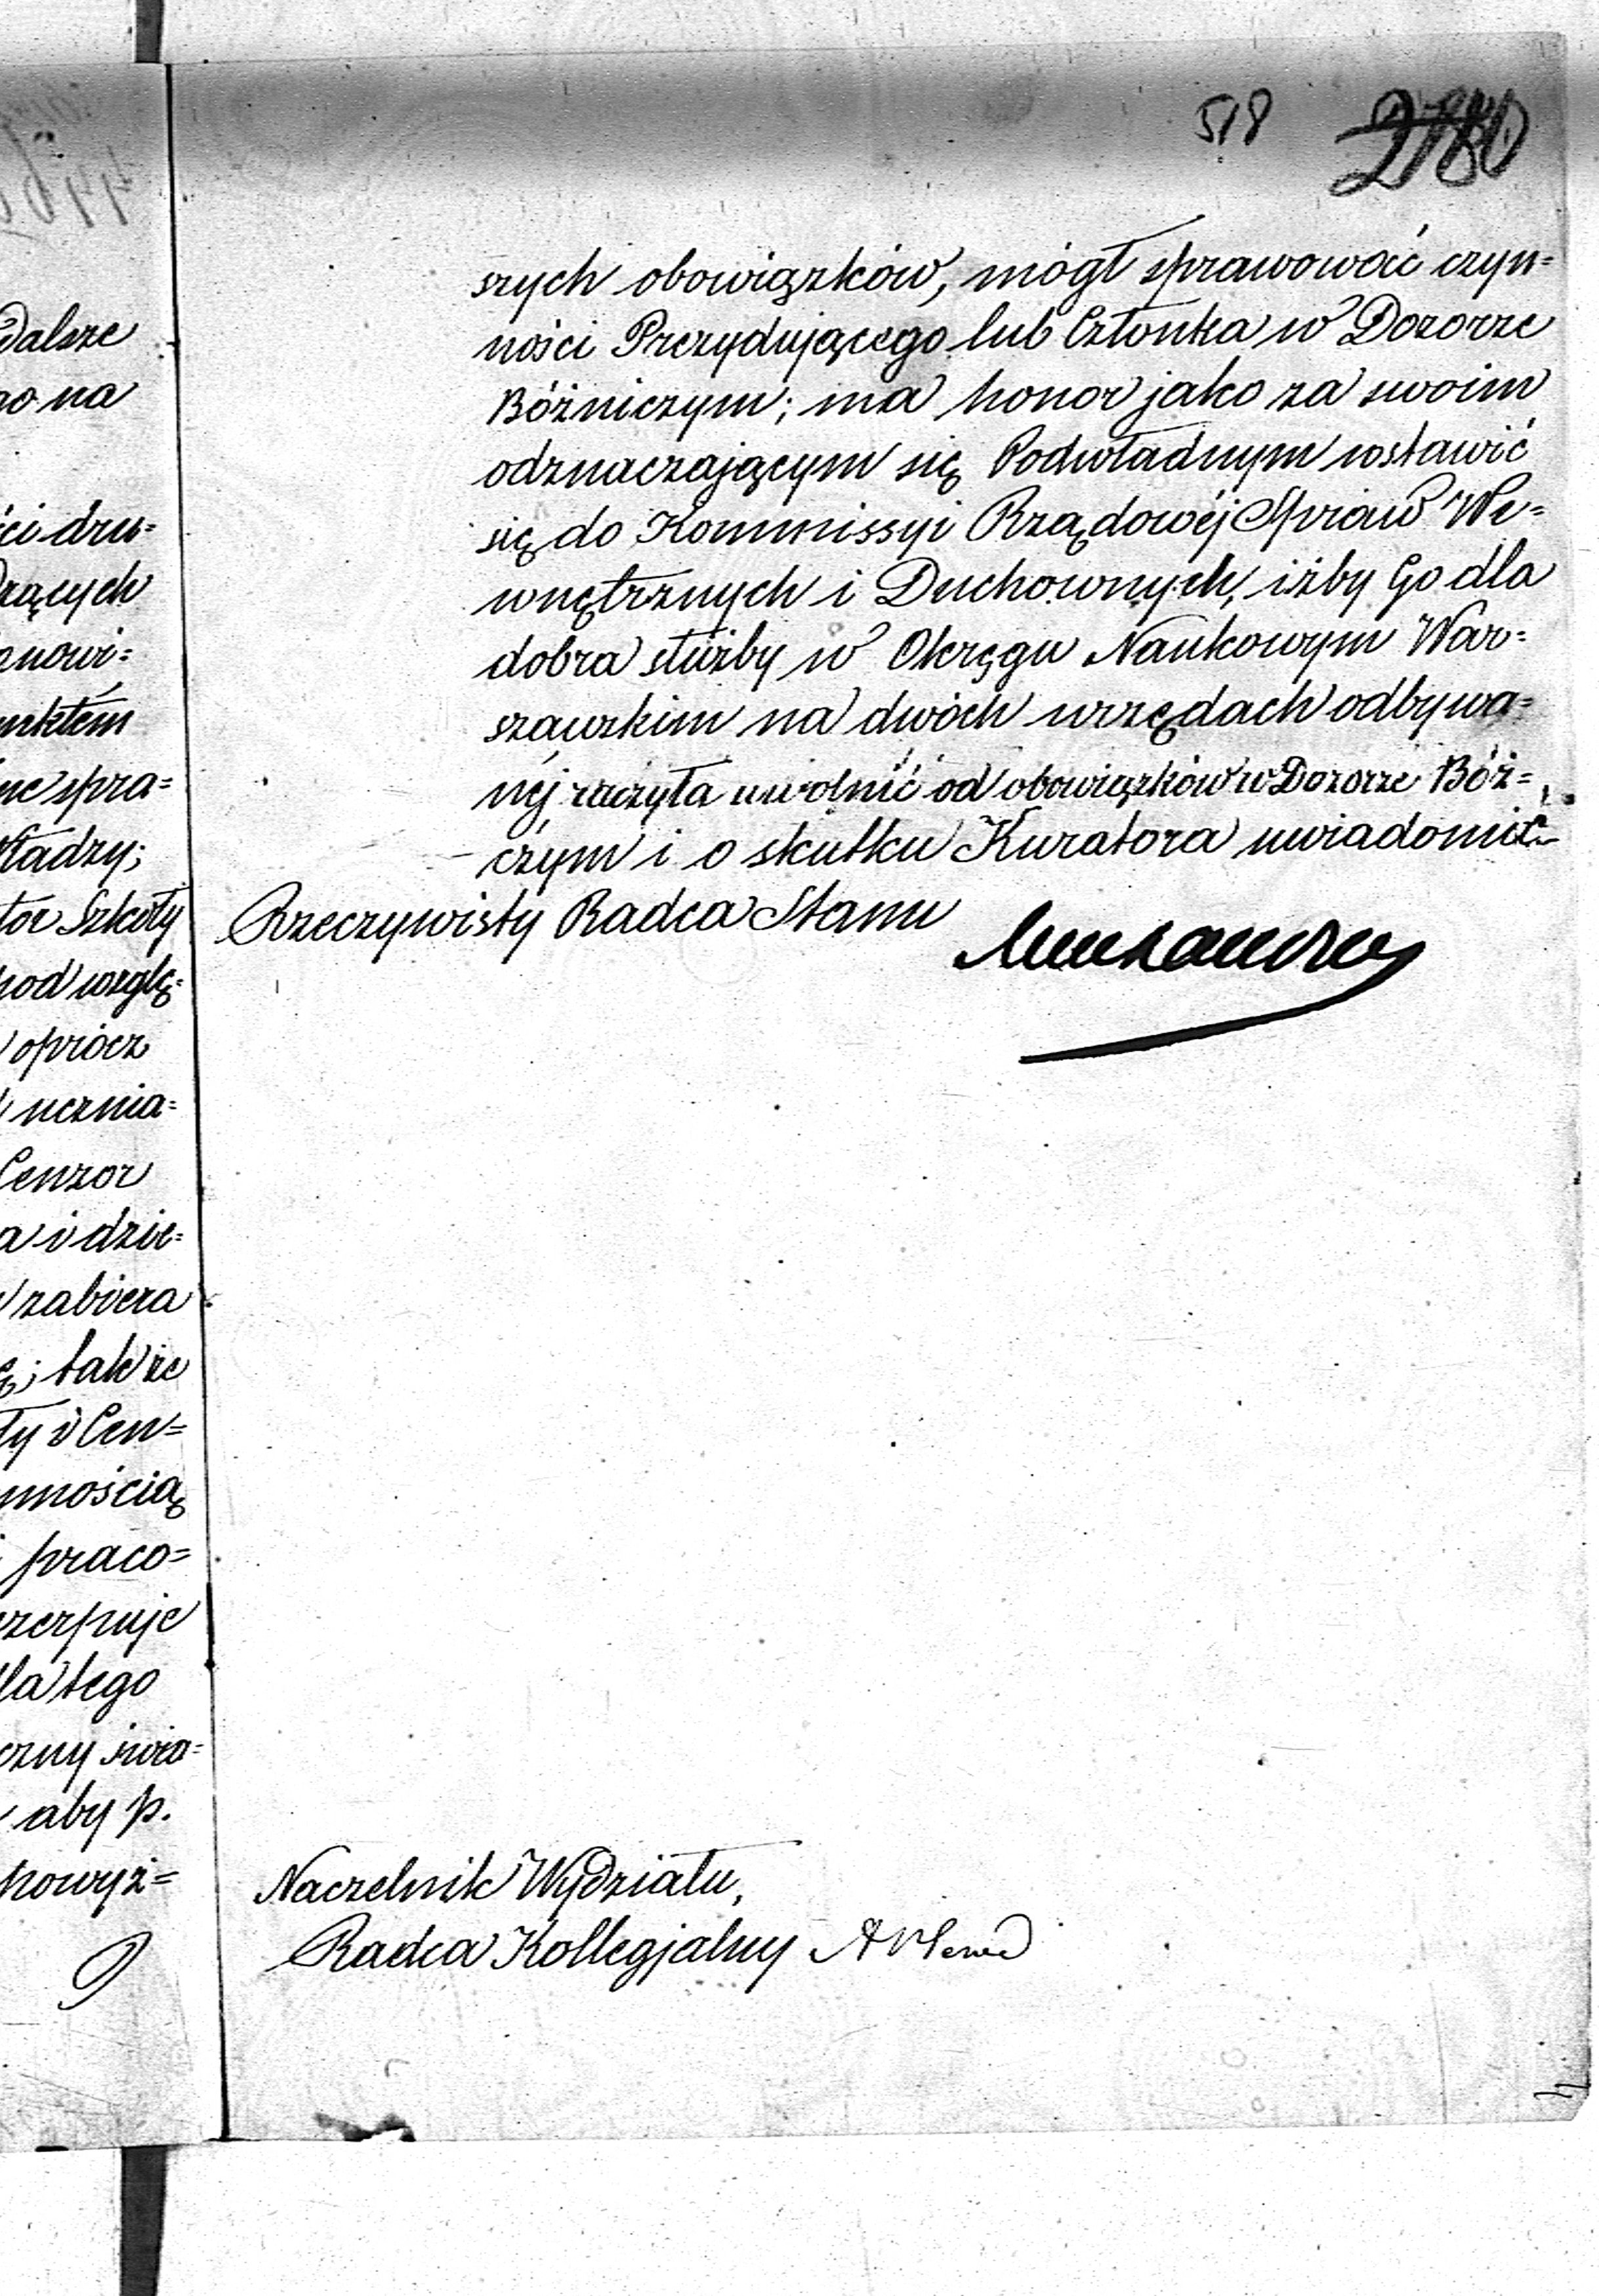 518 2180
szych obowiązków, mógł sprawować czyn=
ności Prezydującego lub Członka w Dozorze
Bóżniczym; ma honor jako za swoim
odznaczającym się Podwładnym wstawić
się do Kommissyi Rządowéj Spraw We=
wnętrznych i Duchownych, iżby Go dla
dobra służby w Okręgu Naukowym War=
szawskim na dwóch urzędach odbywa=
néj raczyła uwolnić od obowiązków w Dozorze Bóż=
czym i o skutku Kuratora uwiadomić.
Rzeczywisty Radca Stanu
Naczelnik Wydziału,
Radca Kollegjalny
dalsze
na
ści dru=
nowi=
spra=
Szkoły
pod wzglę=
oprócz
ucznia=
Cenzor
a i dzie=
zabiera
tak że
ły i Cen=
mnością
praco=
czerpuje
dla tego
czny świa=
aby p.
powyż=